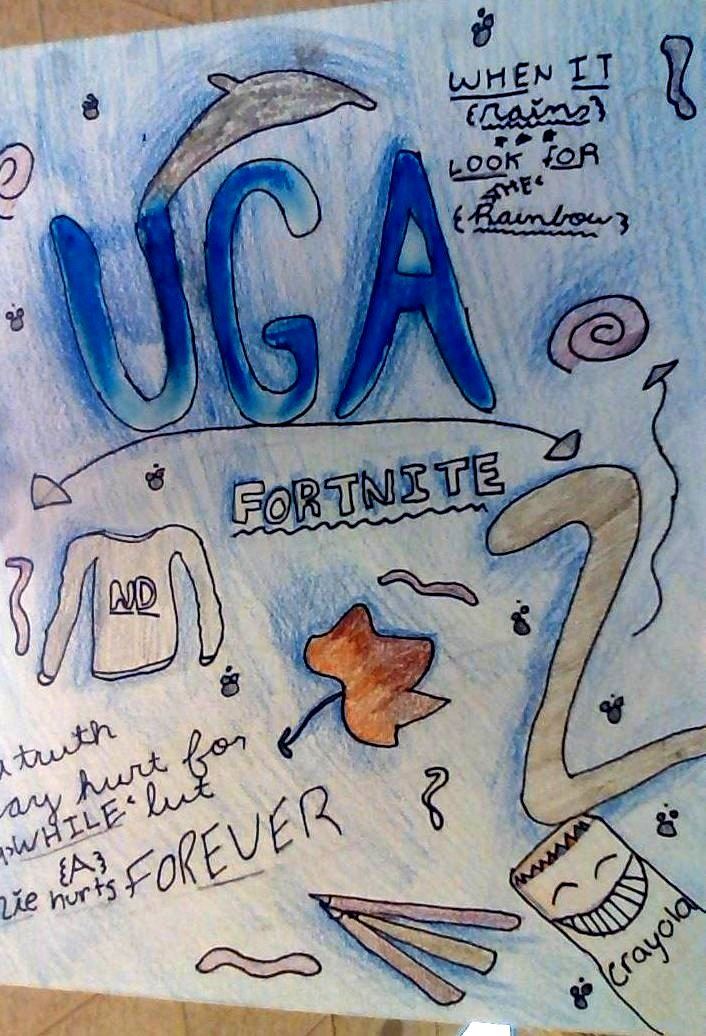 WHEN IT
{Rains}
LOOK FOR
THE
{Rainbow}
UGA
FORTNITE
WD
truth
hurt for
WHILE but
{A}
lie hurts FOREVER
crayola